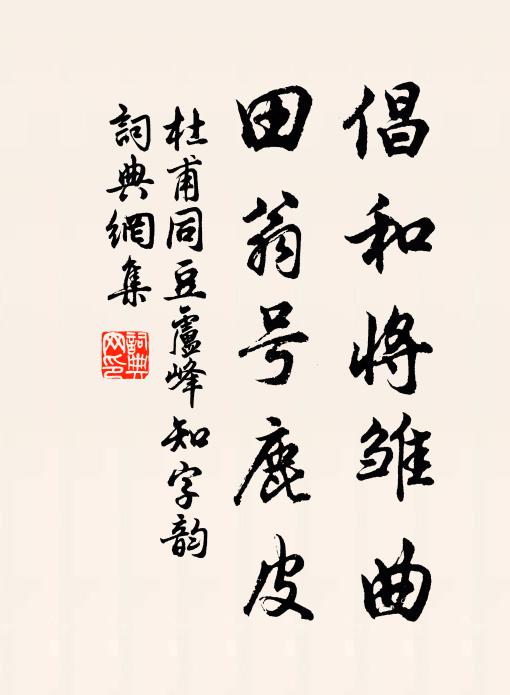 倡和将雏曲
田翁号鹿皮
杜甫同豆盧峰知字韵
詞典網集
詞典网印